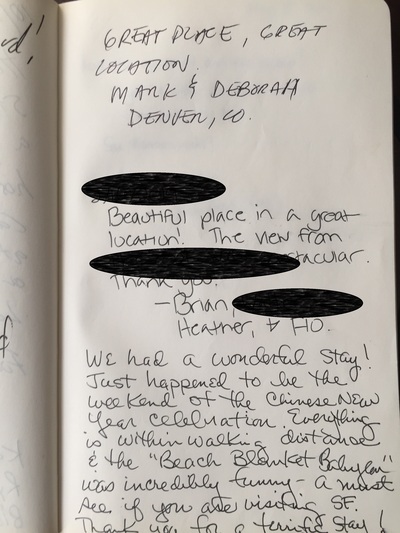 rd!
GREAT PLACE, GREAT
LOCATION.
MARK & DEBORAH
DENVER, CO.
Beautiful place in a great
location! The view from
tacular.
Thank you!
- Brian,
Heather, & FIO.
WE HAD a wonderful stay!
Just happened to be the
weekend of the Chinese New
Year celebration. Everything
is within walking distance
& the "Beach Blanket Babylon"
was incredibly funny - a must
see if you are visiting SF.
Thank you for a terrific stay!